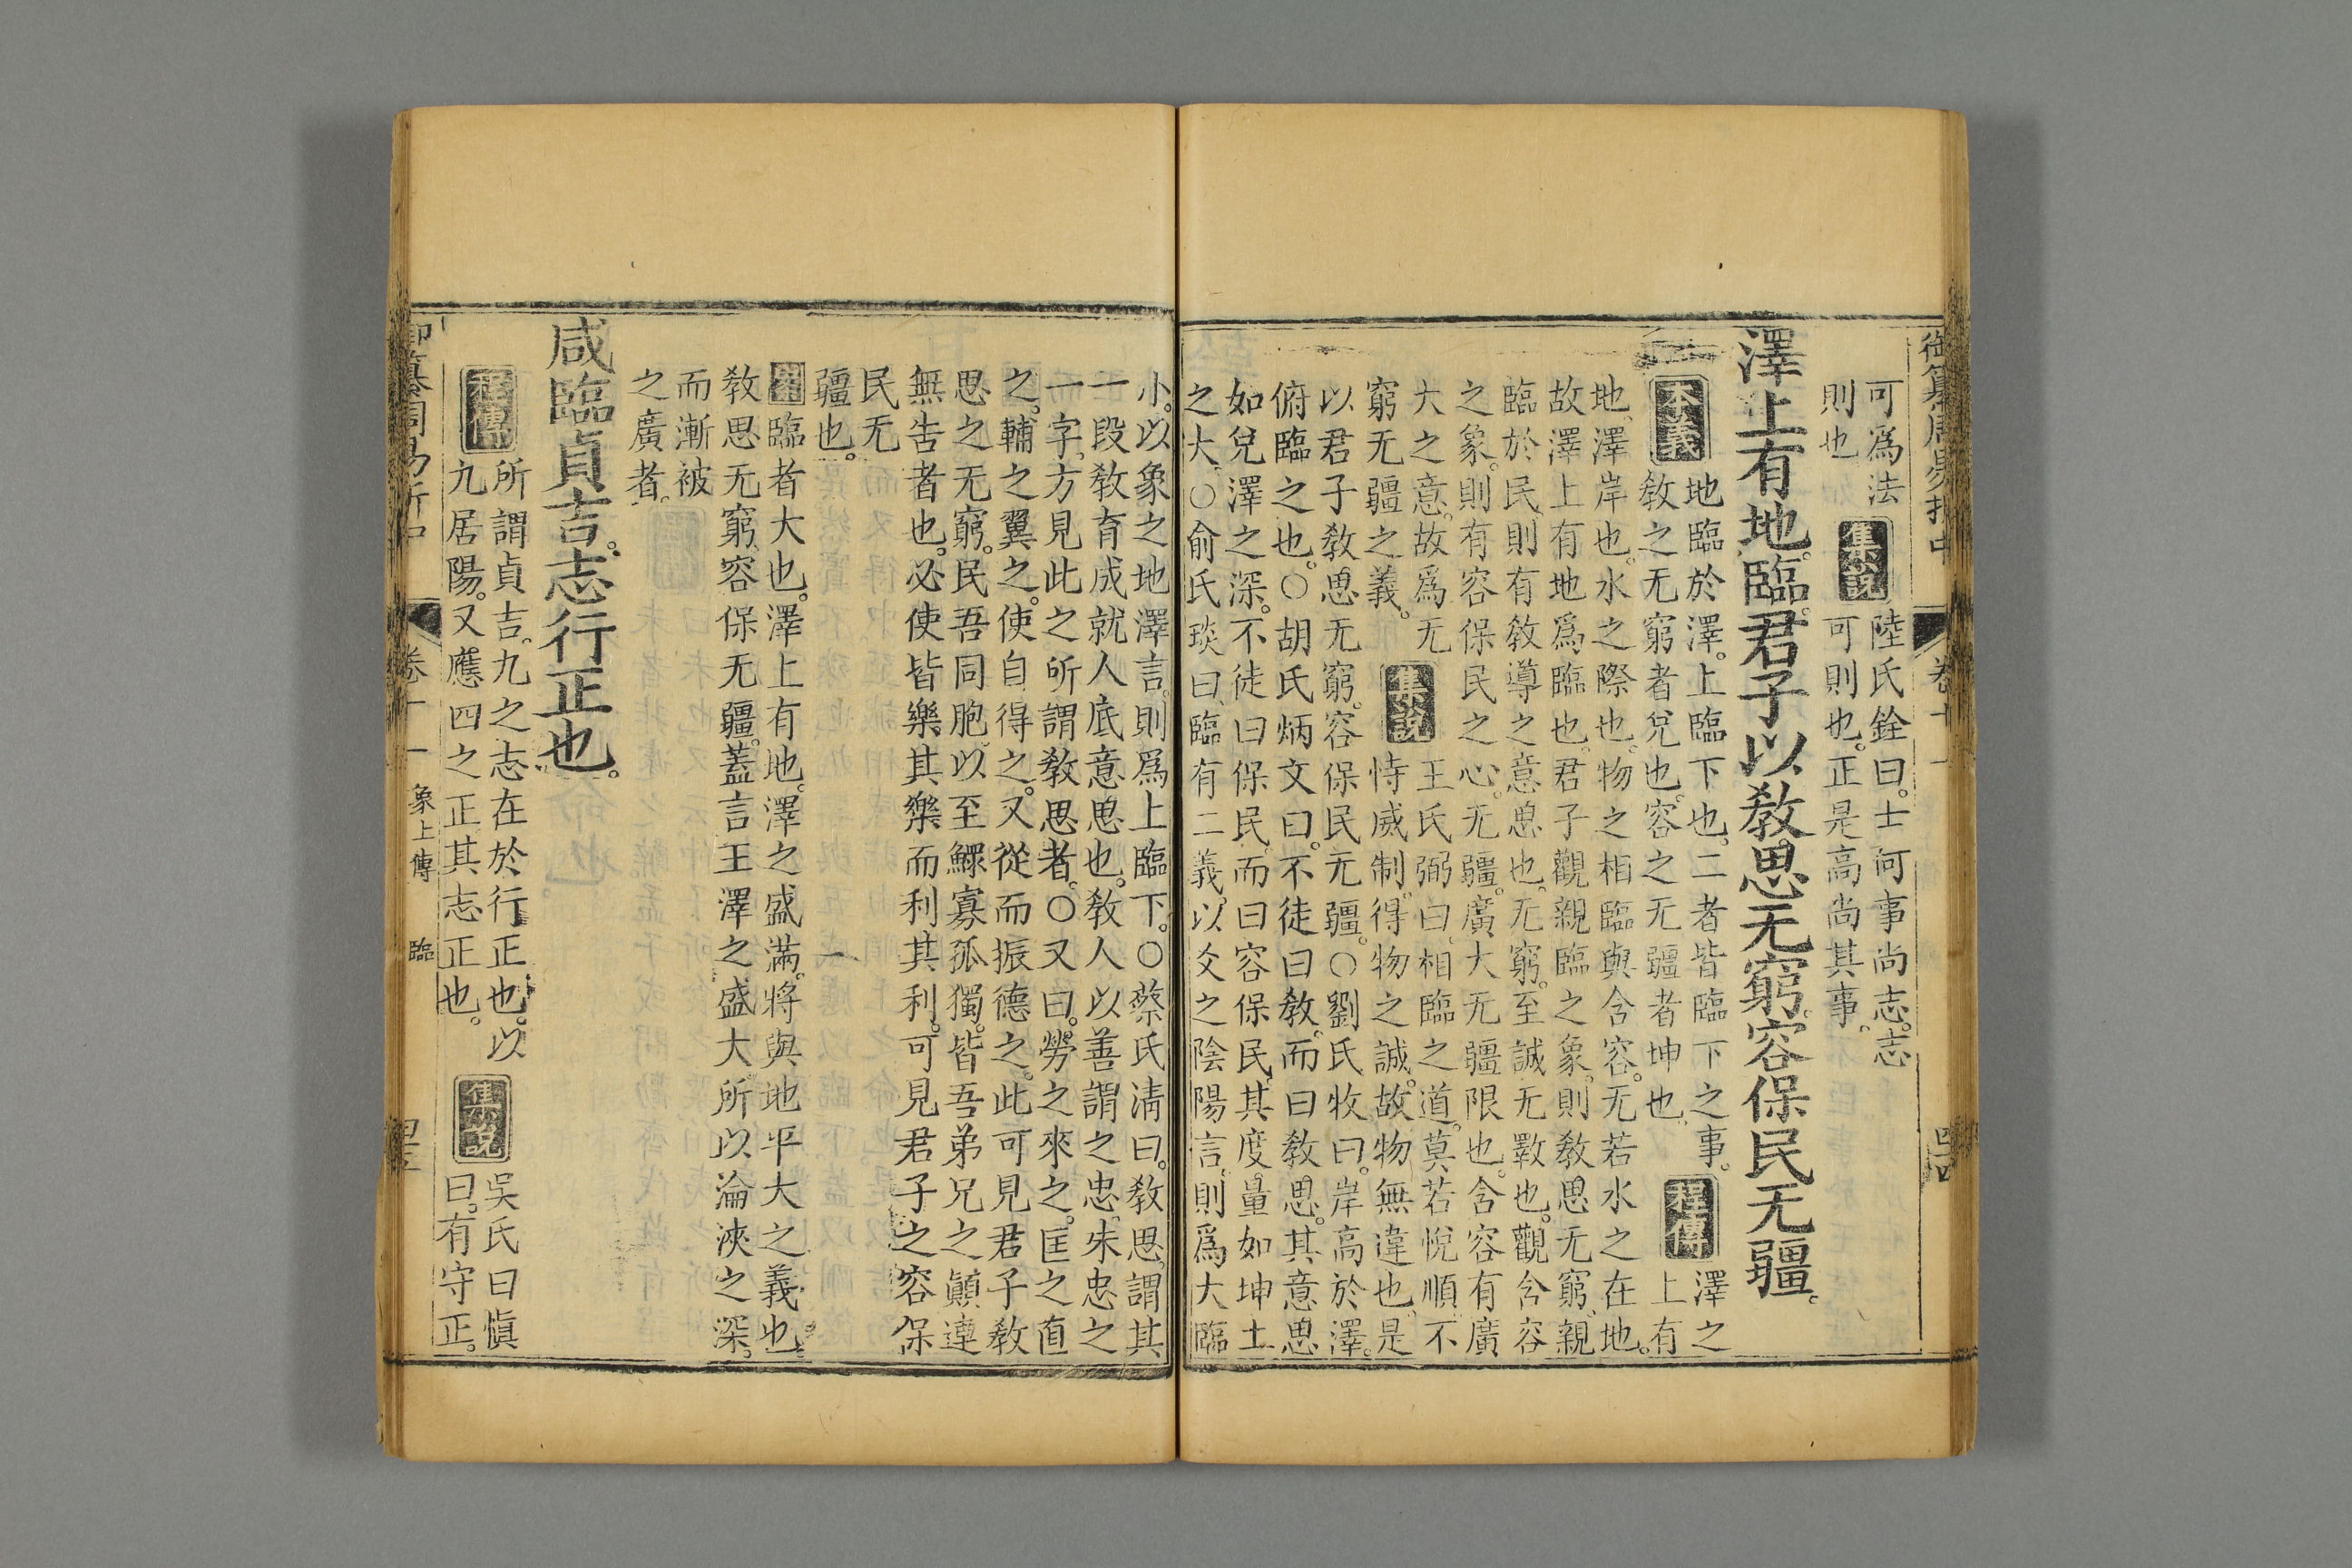 御纂周易折中
卷十一
四四
可爲法 集說 陸氏銓曰。士何事尚志。志
則也 可則也。正是高尚其事。
澤上有地。臨。君子以教思无窮。容保民无疆。
本義 地臨於澤。上臨下也。二者皆臨下之事。 程傳 澤之
教之无窮者兌也。容之无疆者坤也。 上有
地。澤岸也。水之際也。物之相臨與含容。无若水之在地。
故澤上有地爲臨也。君子觀親臨之象。則教思无窮。親
臨於民。則有教導之意思也。无窮。至誠无斁也。觀含容
之象。則有容保民之心。无疆。廣大无疆限也。含容有廣
大之意。故爲无 集說 王氏弼曰。相臨之道。莫若悅順。不
窮无疆之義。 恃威制。得物之誠。故物無違也。是
以君子教思无窮。容保民无疆。○劉氏牧曰。岸高於澤。
俯臨之也。○胡氏炳文曰。不徒曰教。而曰教思。其意思
如兌澤之深。不徒曰保民。而曰容保民。其度量如坤土
之大。○俞氏琰曰。臨有二義。以爻之陰陽言。則爲大臨
小。以象之地澤言。則爲上臨下。○蔡氏淸曰。教思。謂其
一段教育成就人底意思也。教人以善謂之忠。朱忠之
一字。方見此之所謂教思者。○又曰。勞之來之。匡之直
之。輔之翼之。使自得之。又從而振德之。此可見君子教
思之无窮。民吾同胞。以至鰥寡孤獨。皆吾弟兄之顚連
無吿者也。必使皆樂其樂而利其利。可見君子之容保
民无
疆也。
案 臨者大也。澤上有地。澤之盛滿。將與地平大之義也。
教思无窮。容保无疆。蓋言王澤之盛大。所以淪浹之深。
而漸被
之廣者。
咸臨貞吉。志行正也。
程傳 所謂貞吉。九之志在於行正也。以 集說 吳氏曰愼
九居陽。又應四之正。其志正也。 曰。有守正。
御纂周易折中
卷十一
象上傳
臨